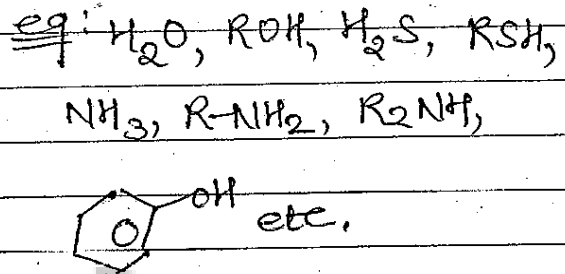 eg: H₂O, ROH, H₂S, RSH,
NH₃, R-NH₂, R₂NH,
OH etc.